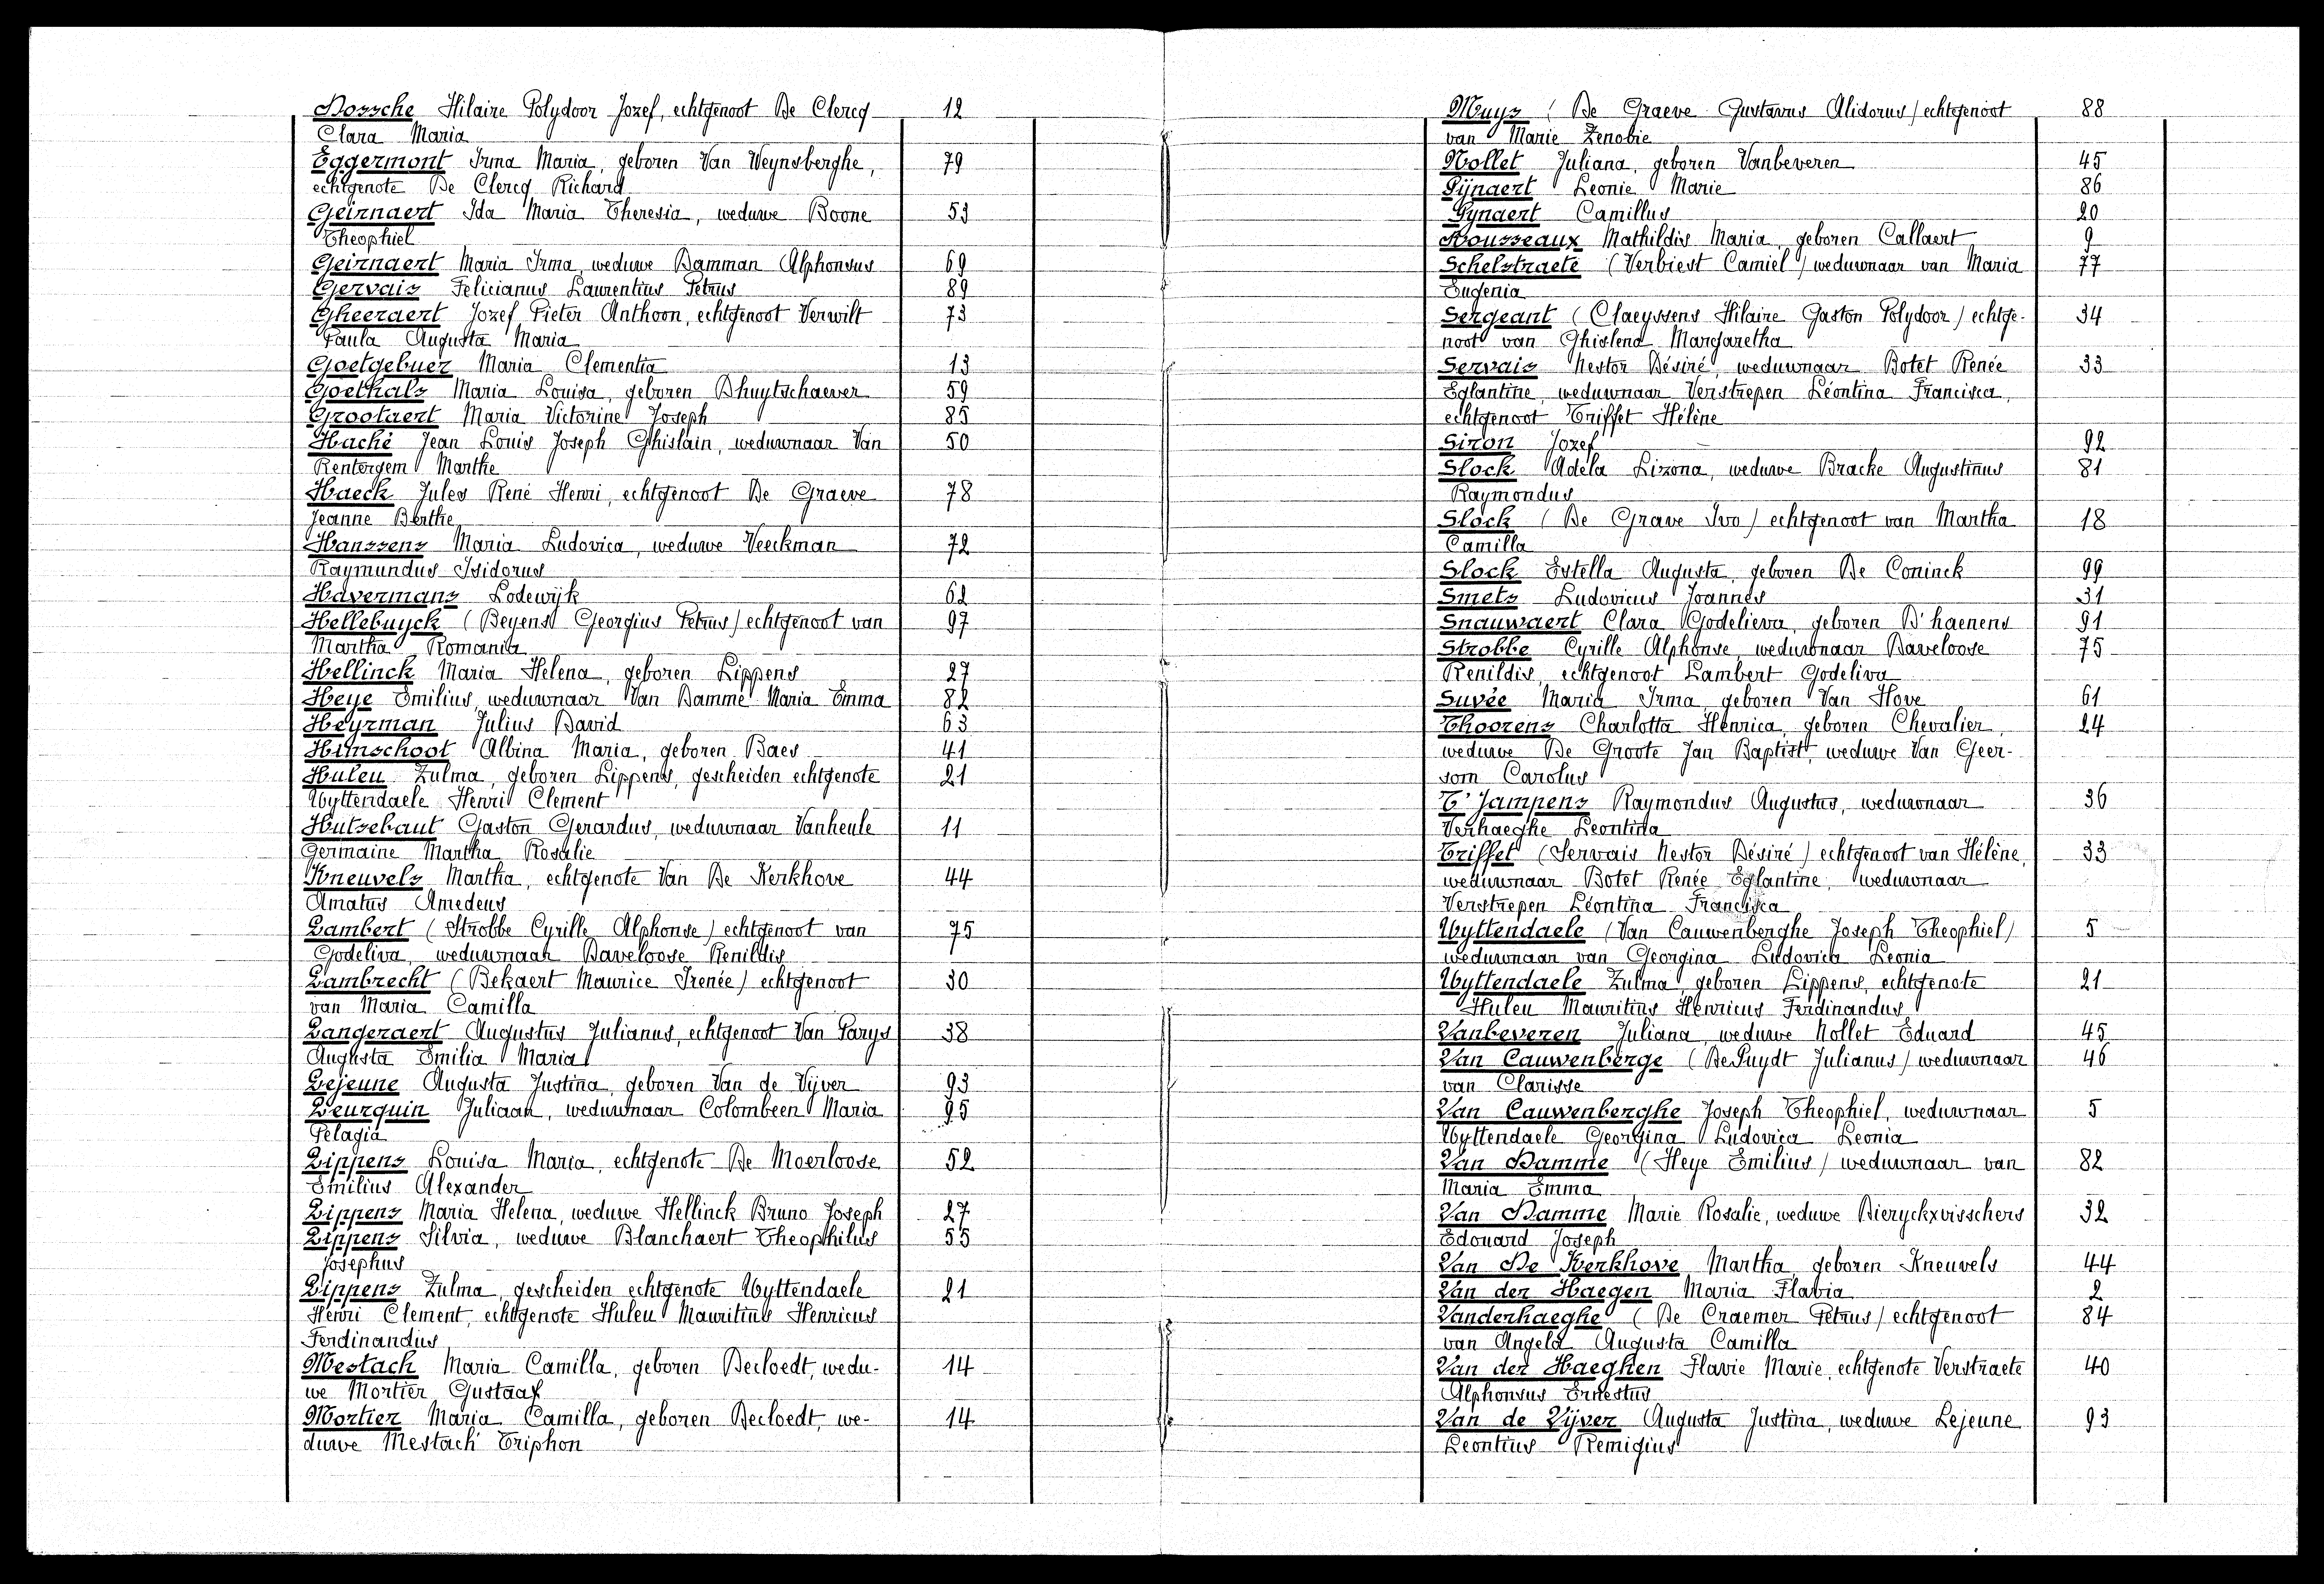 Dossche Hilaire Polydoor Jozef, echtgenoot De Clercq 12
Clara Maria
Eggermont Irma Maria, geboren Van Weynsberghe, 79
echtgenote De Clercq Richard
Geirnaert Ida Maria Theresia, weduwe Boone 53
Theophiel
Geirnaert Maria Irma, weduwe Damman Alphonsus 69
Gervais Felicianus Laurentius Petrus 89
Gheeraert Jozef Pieter Anthoon, echtgenoot Verwilt 73
Paula Augusta Maria
Goetgebuer Maria Clementia 13
Goethals Maria Louisa, geboren Dhuytschaever 59
Grootaert Maria Victorine Joseph 85
Haché Jean Louis Joseph Ghislain, weduwnaar Van 50
Rentergem Marthe
Haeck Jules René Henri, echtgenoot De Graeve 78
Jeanne Berthe
Hanssens Maria Ludovica, weduwe Veeckman 72
Raymundus Isidorus
Havermans Lodewijk 62
Hellebuyck (Beyens Georgius Petrus) echtgenoot van 97
Martha Romania
Hellinck Maria Helena, geboren Lippens 27
Heye Emilius, weduwnaar Van Damme Maria Emma 82
Heyrman Julius David 63
Himschoot Albina Maria, geboren Baes 41
Huleu Zulma, geboren Lippens, gescheiden echtgenote 21
Uyttendaele Henri Clement
Hutsebaut Gaston Gerardus, weduwnaar Vanheule 11
Germaine Martha Rosalie
Kneuvels Martha, echtgenote Van De Kerkhove 44
Amatus Amedeus
Lambert (Strobbe Cyrille Alphonse) echtgenoot van 75
Godeliva, weduwnaar Daveloose Renildis
Lambrecht (Bekaert Maurice Irenée) echtgenoot 30
van Maria Camilla
Langeraert Augustus Julianus, echtgenoot Van Parys 38
Augusta Emilia Maria
Lejeune Augusta Justina, geboren Van de Vijver 93
Leurquin Juliaan, weduwnaar Colombeen Maria 95
Pelagia
Lippens Louisa Maria, echtgenote De Moerloose 52
Emilius Alexander
Lippens Maria Helena, weduwe Hellinck Bruno Joseph 27
Lippens Silvia, weduwe Blanchaert Theophilus 55
Josephus
Lippens Zulma, gescheiden echtgenote Uyttendaele 21
Henri Clement, echtgenote Huleu Mauritius Henricus
Ferdinandus
Mestach Maria Camilla, geboren Decloedt, wedu- 14
we Mortier Gustaaf
Mortier Maria Camilla, geboren Decloedt, we- 14
duwe Mestach Triphon
Muys (De Graeve Gustavus Alidorus) echtgenoot 88
van Marie Zenobie
Nollet Juliana, geboren Vanbeveren 45
Pijnaert Leonie Marie 86
Pynaert Camillus 20
Rousseaux Mathildis Maria, geboren Callaert 9
Schelstraete (Verbiest Camiel) weduwnaar van Maria 77
Eugenia
Sergeant (Claeyssens Hilaire Gaston Polydoor) echtge- 34
noot van Ghislena Margaretha
Servais Nestor Désiré, weduwnaar Botet Renée 33
Eglantine, weduwnaar Verstrepen Léontina Francisca,
echtgenoot Triffet Hélène
Siron Jozef 92
Slock Adela Lizona, weduwe Bracke Augustinus 81
Raymondus
Slock (De Grave Ivo) echtgenoot van Martha 18
Camilla
Slock Estella Augusta, geboren De Coninck 99
Smets Ludovicus Joannes 31
Snauwaert Clara Godelieva, geboren D'haenens 91
Strobbe Cyrille Alphonse, weduwnaar Daveloose 75
Renildis, echtgenoot Lambert Godeliva
Suvée Maria Irma, geboren Van Hove 61
Thoorens Charlotta Henrica, geboren Chevalier, 24
weduwe De Groote Jan Baptist, weduwe Van Geer-
som Carolus
T'Jampens Raymondus Augustus, weduwnaar 36
Verhaeghe Leontina
Triffet (Servais Nestor Désiré) echtgenoot van Hélène, 33
weduwnaar Botet Renée Eglantine, weduwnaar
Verstrepen Léontina Francisca
Uyttendaele (Van Cauwenberghe Joseph Theophiel) 5
weduwnaar van Georgina Ludovica Leonia
Uyttendaele Zulma, geboren Lippens, echtgenote 21
Huleu Mauritius Henricus Ferdinandus
Vanbeveren Juliana, weduwe Nollet Eduard 45
Van Cauwenberge (De Puydt Julianus) weduwnaar 46
van Clarisse
Van Cauwenberghe Joseph Theophiel, weduwnaar 5
Uyttendaele Georgina Ludovica Leonia
Van Damme (Heye Emilius) weduwnaar van 82
Maria Emma
Van Damme Marie Rosalie, weduwe Bieryckxvisschers 32
Edouard Joseph
Van De Kerkhove Martha, geboren Kneuvels 44
Van der Haegen Maria Flavia 2
Vanderhaeghe (De Craemer Petrus) echtgenoot 84
van Angela Augusta Camilla
Van der Haeghen Flavie Marie, echtgenote Verstraete 40
Alphonsus Ernestus
Van de Vijver Augusta Justina, weduwe Lejeune 93
Leontius Remigius